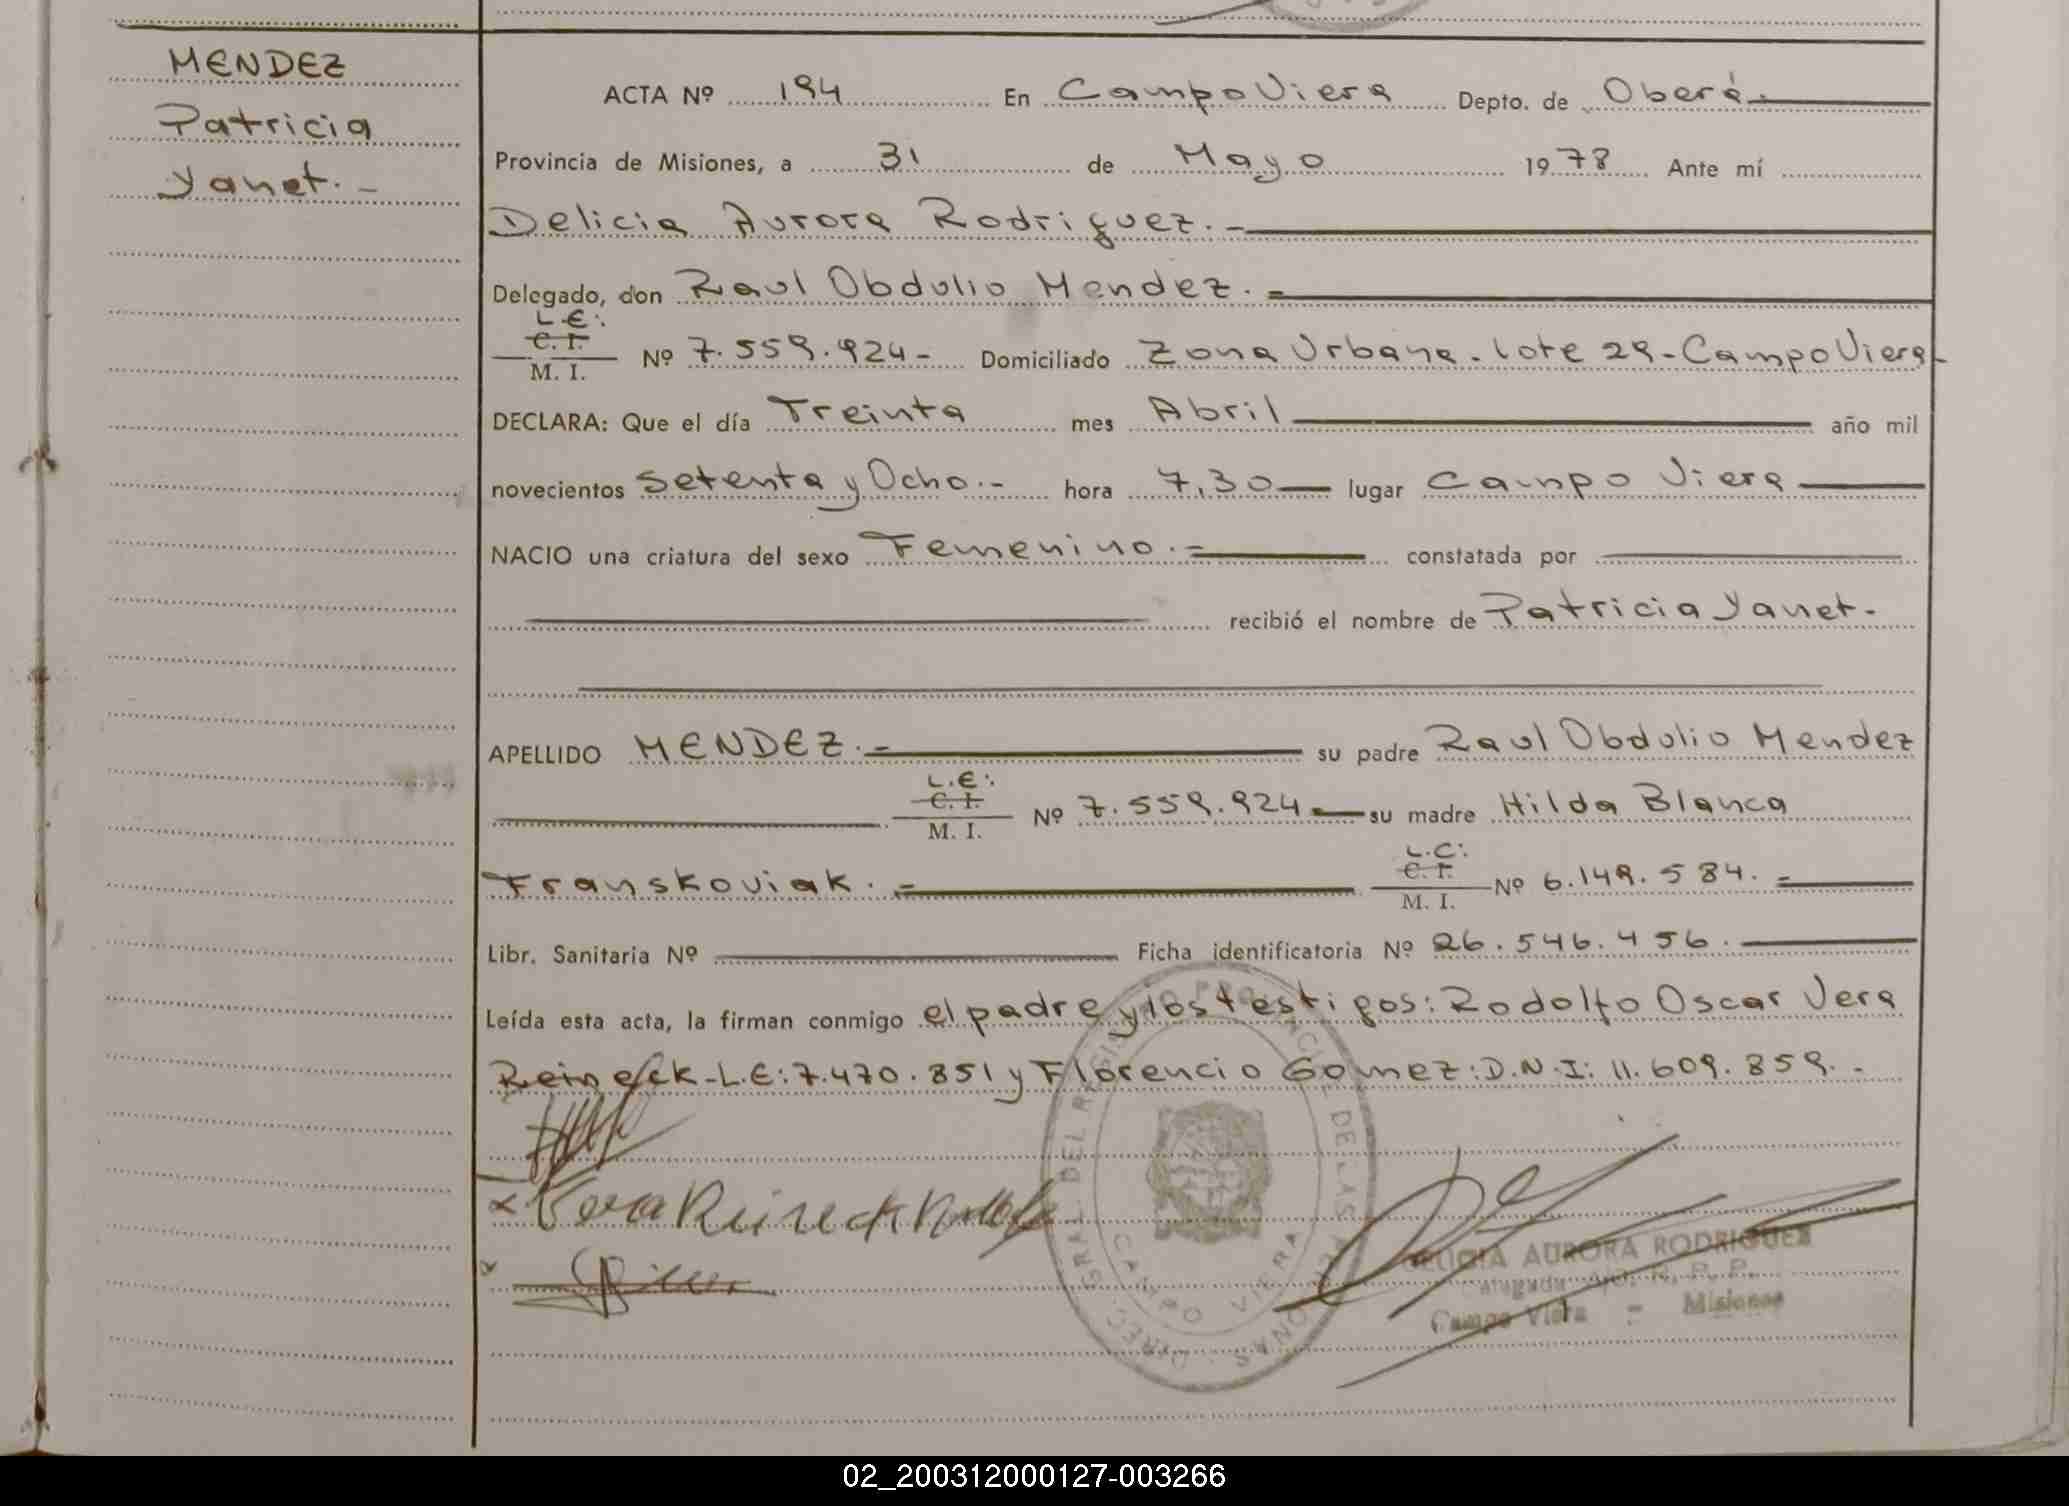 MENDEZ
Patricia
Yanet.-
ACTA Nº 194 En Campo Viera Depto. de Oberá.
Provincia de Misiones, a 31 de Mayo 1978 Ante mí
Delicia Aurora Rodriguez.-
Delegado, don Raul Obdulio Mendez.-
L.E:
C. I.
M. I.
Nº 7.559.924- Domiciliado Zona Urbana-lote 29-Campo Viera-
DECLARA: Que el día Treinta mes Abril año mil
novecientos Setenta y Ocho.- hora 7,30 lugar Campo Viera
NACIO una criatura del sexo Femenino.- constatada por
recibió el nombre de Patricia Yanet-
APELLIDO MENDEZ.- su padre Raul Obdulio Mendez
L.E:
C. I.
M. I.
Nº 7.559.924 su madre Hilda Blanca
Franskoviak.-
L.C:
C. I.
M. I.
Nº 6.149.584.-
Libr. Sanitaria Nº Ficha identificatoria Nº 26.546.456.
Leída esta acta, la firman conmigo el padre y los testigos: Rodolfo Oscar Vera
Reineck-L.E:7.470.851 y Florencio Gomez:D.N.I: 11.609.859.-
Vera Reineck Rodolfo
DIREC. GRAL. DEL REGISTRO PROVINCIAL DE LAS PERSONAS
CAMPO VIERA
DELICIA AURORA RODRIGUEZ
Campo Viera - Misiones
02_200312000127-003266